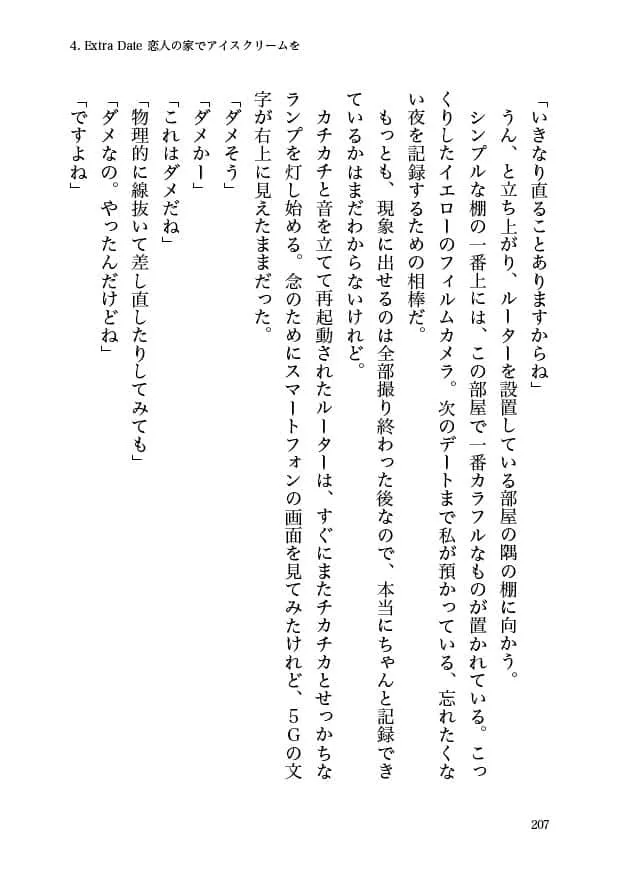 4. Extra Date 恋人の家でアイスクリームを
「いきなり直ることありますからね」
うん、と立ち上がり、ルーターを設置している部屋の隅の棚に向かう。
シンプルな棚の一番上には、この部屋で一番カラフルなものが置かれている。こっ
くりしたイエローのフィルムカメラ。次のデートまで私が預かっている、忘れたくな
い夜を記録するための相棒だ。
もっとも、現象に出せるのは全部撮り終わった後なので、本当にちゃんと記録でき
ているかはまだわからないけれど。
カチカチと音を立てて再起動されたルーターは、すぐにまたチカチカとせっかちな
ランプを灯し始める。念のためにスマートフォンの画面を見てみたけれど、5Gの文
字が右上に見えたままだった。
「ダメそう」
「ダメかー」
「これはダメだね」
「物理的に線抜いて差し直したりしてみても」
「ダメなの。やったんだけどね」
「ですよね」
207